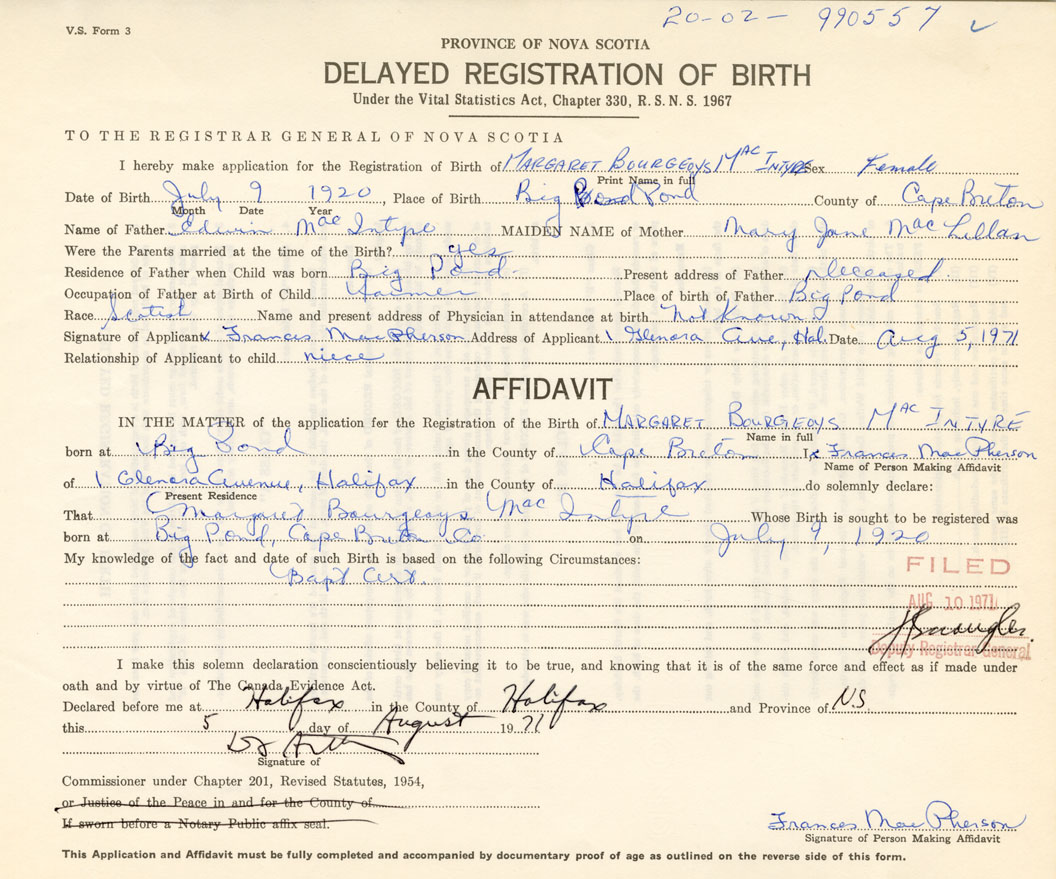 20-02- 990557
V.S. Form 3
PROVINCE OF NOVA SCOTIA
DELAYED REGISTRATION OF BIRTH
Under the Vital Statistics Act, Chapter 330, R.S.N.S. 1967
TO THE REGISTRAR GENERAL OF NOVA SCOTIA
I hereby make application for the Registration of Birth of MARGARET BOURGEOYS MAC INTYRE Sex Female
Print Name in full
Date of Birth July 9 1920, Place of Birth Big Pond County of Cape Breton
Month Date Year
Name of Father Edwin Mac Intyre MAIDEN NAME of Mother Mary Jane MacLellan
Were the Parents married at the time of the Birth? yes
Residence of Father when Child was born Big Pond Present address of Father deceased
Occupation of Father at Birth of Child Farmer Place of birth of Father Big Pond
Race Scotish Name and present address of Physician in attendance at birth not known
Signature of Applicant x Frances MacPherson Address of Applicant 1 Glenora Ave, Hal. Date Aug 5, 1971
Relationship of Applicant to child niece
AFFIDAVIT
IN THE MATTER of the application for the Registration of the Birth of MARGARET BOURGEOYS MAC INTYRE
Name in full
born at Big Pond in the County of Cape Breton I, x Frances MacPherson
Name of Person Making Affidavit
of 1 Glenora Avenue, Halifax in the County of Halifax do solemnly declare:
Present Residence
That Margaret Bourgeoys Mac Intyre Whose Birth is sought to be registered was
born at Big Pond, Cape Breton Co. on July 9, 1920
My knowledge of the fact and date of such Birth is based on the following Circumstances:
Bapt Cert.
FILED
AUG 10 1971
Deputy Registrar General
I make this solemn declaration conscientiously believing it to be true, and knowing that it is of the same force and effect as if made under
oath and by virtue of The Canada Evidence Act.
Declared before me at Halifax in the County of Halifax and Province of NS
this 5 day of August 1971
Signature of
Commissioner under Chapter 201, Revised Statutes, 1954,
or Justice of the Peace in and for the County of
If sworn before a Notary Public affix seal.
Frances MacPherson
Signature of Person Making Affidavit
This Application and Affidavit must be fully completed and accompanied by documentary proof of age as outlined on the reverse side of this form.